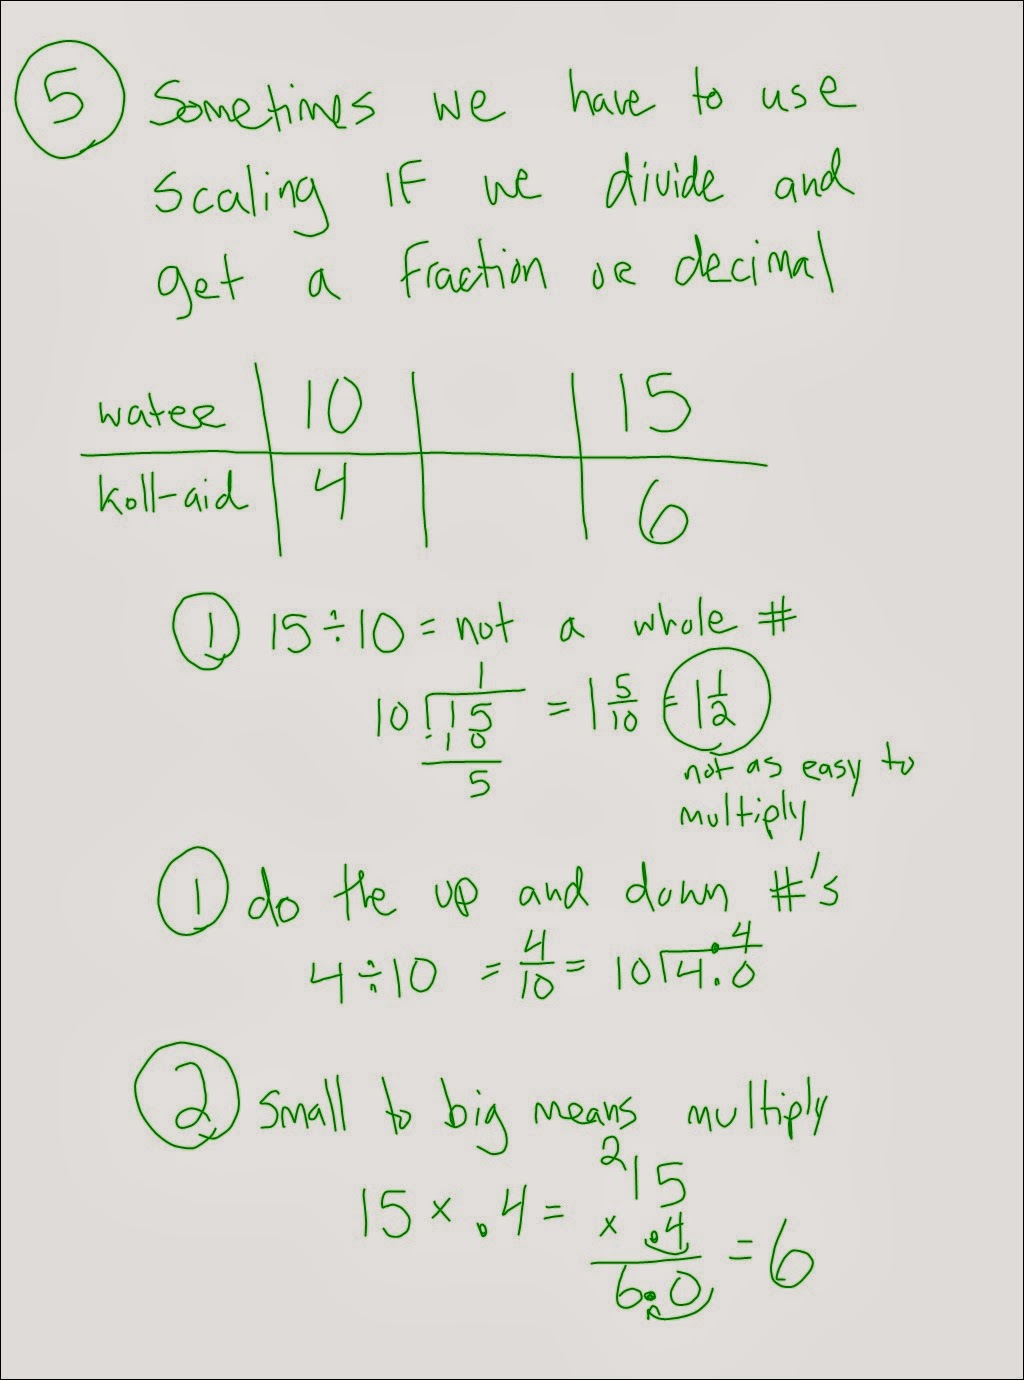 5 Sometimes we have to use
scaling IF we divide and
get a fraction or decimal
water 10 15
koll-aid 4 6
1 15 ÷ 10 = not a whole #
1
10 15 = 1 5/10 = 1 1/2
- 1 0
5
not as easy to
multiply
1 do the up and down #'s
4 ÷ 10 = 4/10 = 10 4.0 .4
2 small to big means multiply
15 × .4 = 2 15
× .4
6.0 = 6